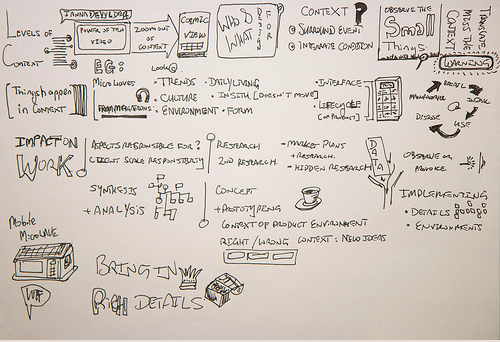 LEVELS OF
CONTEXT
POWER OF TEN
VIDEO
ZOOM OUT
OF
CONTEXT
COSMIC
VIEW
WHO &
WHAT
DESIGN
FOR
CONTEXT?
SURROUND EVENT
INTEGRATE CONDITION
OBSERVE THE
Small
Things
TRANSLATE
MISS THE
CONTEXT
WARNING
Things happen
in CONTEXT
EG:
Look@
Microwaves
• TRENDS • DAILY LIVING
• CULTURE • IN SITU [DOESN'T MOVE]
• ENVIRONMENT • FORM
• INTERFACE
• LIFECYCLE
(OF PRODUCT)
MANUFACTURE
RETAIL
USE
IMPACT ON
WORK
ASPECTS RESPONSIBLE FOR?
CLIENT SCALE RESPONSIBILITY
RESEARCH
2ND RESEARCH
- MARKET PLANS
+ RESEARCH
- HIDDEN RESEARCH
DATA
OBSERVE OR
PROVOKE
SYNTHESIS
+ ANALYSIS
CONCEPT
+ PROTOTYPING
CONTEXT OF PRODUCT ENVIRONMENT
RIGHT/WRONG CONTEXT: NEW IDEAS
IMPLEMENTING
• DETAILS
• ENVIRONMENTS
Mobile
Microwave
BRING IN
RICH DETAILS